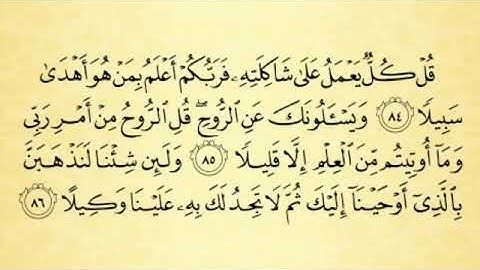 قُلْ كُلٌّ يَعْمَلُ عَلَىٰ شَاكِلَتِهِۦ فَرَبُّكُمْ أَعْلَمُ بِمَنْ هُوَ أَهْدَىٰ
سَبِيلًا ٨٤ وَيَسْـَٔلُونَكَ عَنِ ٱلرُّوحِ ۖ قُلِ ٱلرُّوحُ مِنْ أَمْرِ رَبِّى
وَمَآ أُوتِيتُم مِّنَ ٱلْعِلْمِ إِلَّا قَلِيلًا ٨٥ وَلَئِن شِئْنَا لَنَذْهَبَنَّ
بِٱلَّذِىٓ أَوْحَيْنَآ إِلَيْكَ ثُمَّ لَا تَجِدُ لَكَ بِهِۦ عَلَيْنَا وَكِيلًا ٨٦